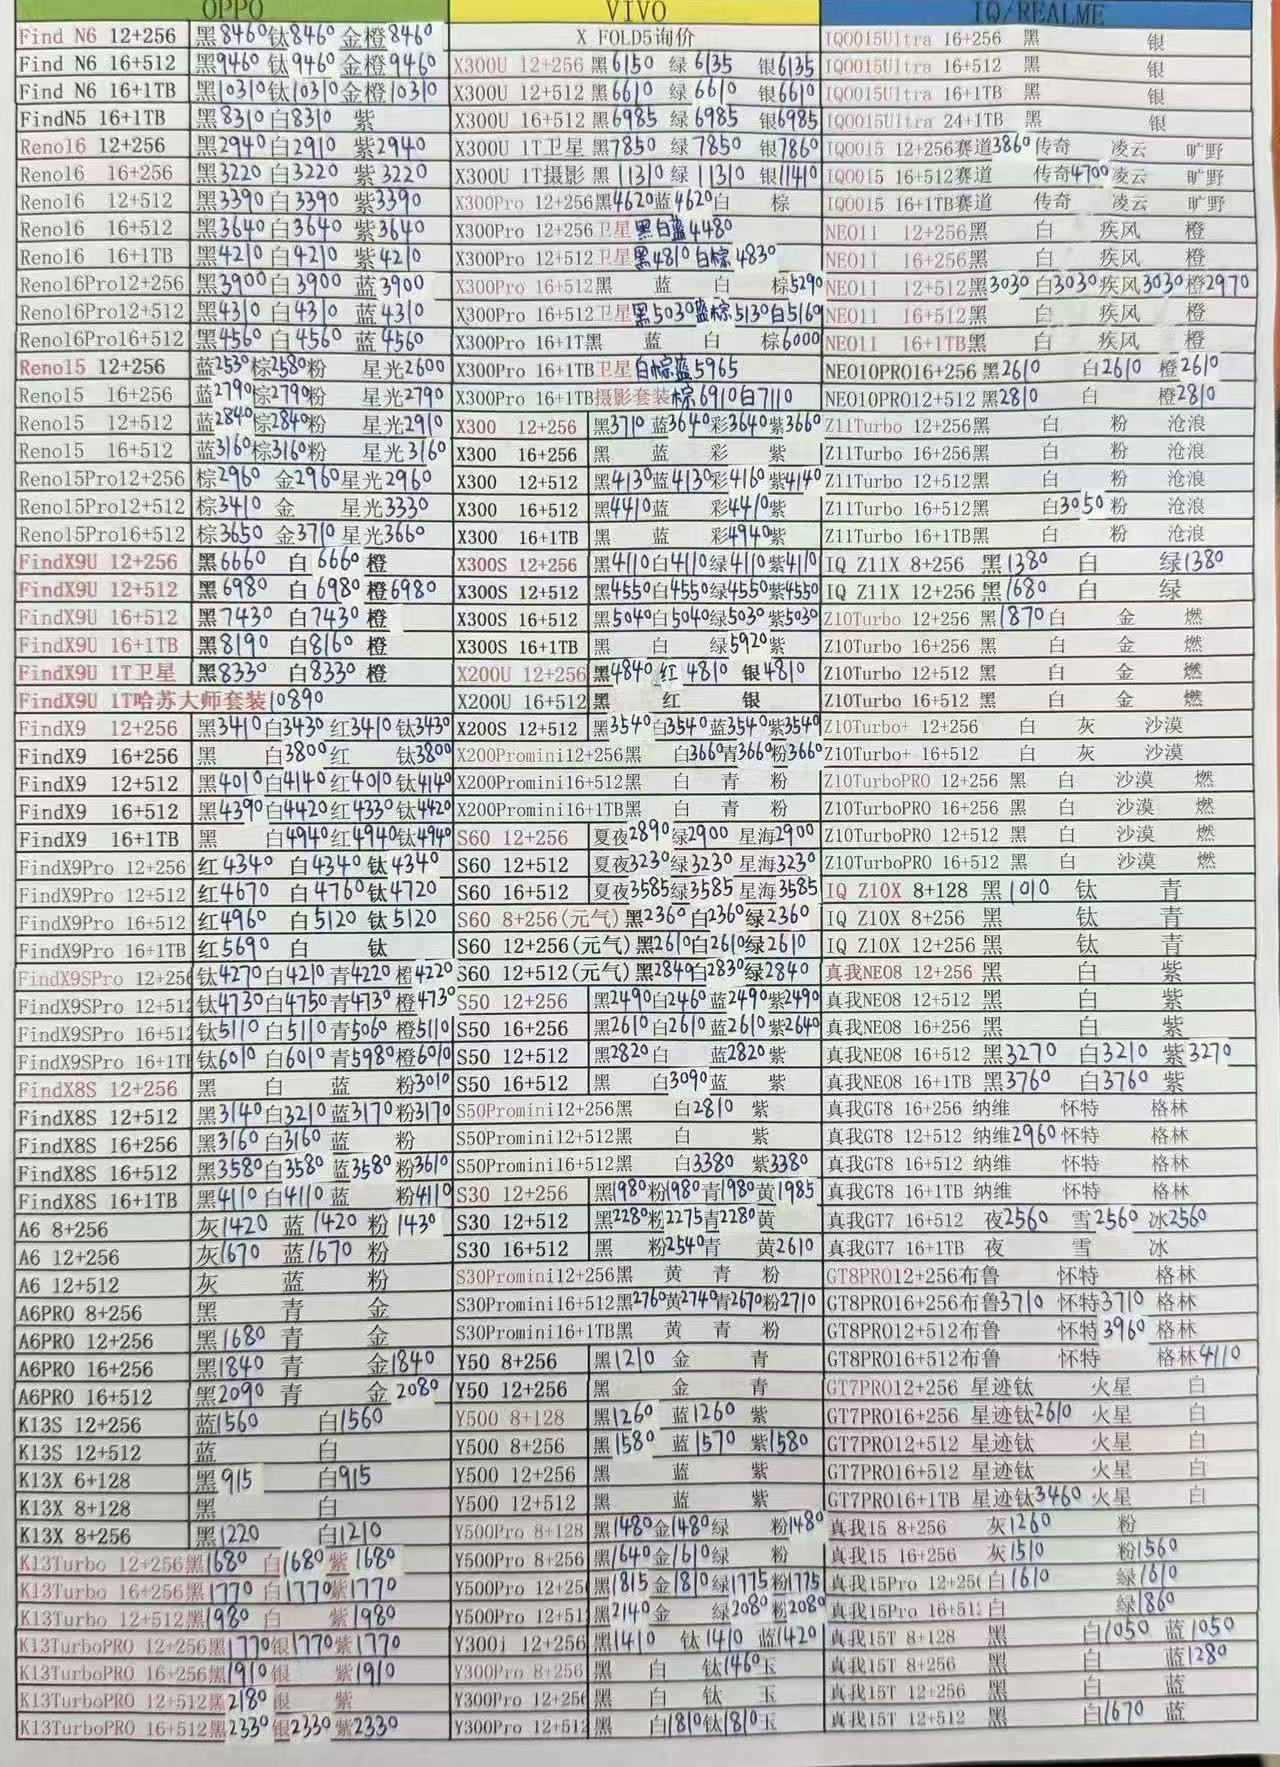 OPPO
Find N6 12+256 黑8460钛8460金橙8460
Find N6 16+512 黑9460钛9460金橙9460
Find N6 16+1TB 黑10310钛10310金橙10310
FindN5 16+1TB 黑8310白8310紫
Reno16 12+256 黑2940白2910紫2940
Reno16 16+256 黑3220白3220紫3220
Reno16 12+512 黑3390白3390紫3390
Reno16 16+512 黑3640白3640紫3640
Reno16 16+1TB 黑4210白4210紫4210
Reno16Pro12+256 黑3900白3900蓝3900
Reno16Pro12+512 黑4310白4310蓝4310
Reno16Pro16+512 黑4560白4560蓝4560
Reno15 12+256 蓝2530棕2580粉 星光2600
Reno15 16+256 蓝2790棕2790粉 星光2790
Reno15 12+512 蓝2840棕2840粉 星光2910
Reno15 16+512 蓝3160棕3160粉 星光3160
Reno15Pro12+256 棕2960 金2960星光2960
Reno15Pro12+512 棕3410 金 星光3330
Reno15Pro16+512 棕3650 金3710星光3660
FindX9U 12+256 黑6660 白6660橙
FindX9U 12+512 黑6980 白6980橙6980
FindX9U 16+512 黑7430 白7430橙
FindX9U 16+1TB 黑8190 白8160橙
FindX9U 1T卫星 黑8330 白8330橙
FindX9U 1T哈苏大师套装10890
FindX9 12+256 黑3410白3430红3410钛3430
FindX9 16+256 黑 白3800红 钛3800
FindX9 12+512 黑4010白4140红4010钛4140
FindX9 16+512 黑4390白4420红4330钛4420
FindX9 16+1TB 黑 白4940红4940钛4940
FindX9Pro 12+256 红4340 白4340钛4340
FindX9Pro 12+512 红4670 白4760钛4720
FindX9Pro 16+512 红4960 白5120钛5120
FindX9Pro 16+1TB 红5690 白 钛
FindX9SPro 12+256 钛4270白4210青4220橙4220
FindX9SPro 12+512 钛4730白4750青4730橙4730
FindX9SPro 16+512 钛5110白5110青5060橙5110
FindX9SPro 16+1TB 钛6010白6010青5980橙6010
FindX8S 12+256 黑 白 蓝 粉3010
FindX8S 12+512 黑3140白3210蓝3170粉3170
FindX8S 16+256 黑3160白3160蓝 粉
FindX8S 16+512 黑3580白3580蓝3580粉3610
FindX8S 16+1TB 黑4110白4110蓝 粉4110
A6 8+256 灰1420 蓝1420粉1430
A6 12+256 灰1670 蓝1670粉
A6 12+512 灰 蓝 粉
A6PRO 8+256 黑 青 金
A6PRO 12+256 黑1680 青 金
A6PRO 16+256 黑1840 青 金1840
A6PRO 16+512 黑2090 青 金2080
K13S 12+256 蓝1560 白1560
K13S 12+512 蓝 白
K13X 6+128 黑915 白915
K13X 8+128 黑 白
K13X 8+256 黑1220 白1210
K13Turbo 12+256黑1680 白1680紫1680
K13Turbo 16+256黑1770 白1770紫1770
K13Turbo 12+512黑1980 白 紫1980
K13TurboPRO 12+256黑1770银1770紫1770
K13TurboPRO 16+256黑1910银 紫1910
K13TurboPRO 12+512黑2180银 紫
K13TurboPRO 16+512黑2330银2330紫2330
VIVO
X FOLD5询价
X300U 12+256 黑6150 绿6135 银6135
X300U 12+512 黑6610 绿6610 银6610
X300U 16+512 黑6985 绿6985 银6985
X300U 1T卫星 黑7850 绿7850 银7860
X300U 1T摄影 黑11310绿11310 银11410
X300Pro 12+256黑4620蓝4620白 棕
X300Pro 12+256卫星黑白蓝4480
X300Pro 12+512卫星黑4810白棕4830
X300Pro 16+512黑 蓝 白 棕5290
X300Pro 16+512卫星黑5030蓝棕5130白5160
X300Pro 16+1T黑 蓝 白 棕6000
X300Pro 16+1TB卫星白棕蓝5965
X300Pro 16+1TB摄影套装棕6910白7110
X300 12+256 黑3710蓝3640彩3640紫3660
X300 16+256 黑 蓝 彩 紫
X300 12+512 黑4130蓝4130彩4160紫4140
X300 16+512 黑4410蓝 彩4410紫
X300 16+1TB 黑 蓝 彩4940紫
X300S 12+256 黑4110白4110绿4110紫4110
X300S 12+512 黑4550白4550绿4550紫4550
X300S 16+512 黑5040白5040绿5030紫5030
X300S 16+1TB 黑 白 绿5920紫
X200U 12+256黑4840红4810银4810
X200U 16+512黑 红 银
X200S 12+512 黑3540白3540蓝3540紫3540
X200Promini12+256黑 白3660青3660粉3660
X200Promini16+512黑 白 青 粉
X200Promini16+1TB黑 白 青 粉
S60 12+256 夏夜2890绿2900 星海2900
S60 12+512 夏夜3230绿3230星海3230
S60 16+512 夏夜3585绿3585星海3585
S60 8+256(元气)黑2360白2360绿2360
S60 12+256(元气)黑2610白2610绿2610
S60 12+512(元气)黑2840白2830绿2840
S50 12+256 黑2490白2460蓝2490紫2490
S50 16+256 黑2610白2610蓝2610紫2640
S50 12+512 黑2820白 蓝2820紫
S50 16+512 黑 白3090蓝 紫
S50Promini12+256黑 白2810 紫
S50Promini12+512黑 白 紫
S50Promini16+512黑 白3380 紫3380
S30 12+256 黑1980粉1980青1980黄1985
S30 12+512 黑2280粉2275青2280黄
S30 16+512 黑 粉2540青 黄2610
S30Promini12+256黑 黄 青 粉
S30Promini16+512黑2760黄2740青2670粉2710
S30Promini16+1TB黑 黄 青 粉
Y50 8+256 黑1210 金 青
Y50 12+256 黑 金 青
Y500 8+128 黑1260 蓝1260 紫
Y500 8+256 黑1580 蓝1570 紫1580
Y500 12+256 黑 蓝 紫
Y500 12+512 黑 蓝 紫
Y500Pro 8+128 黑1480金1480绿 粉1480
Y500Pro 8+256 黑1640金1610绿 粉
Y500Pro 12+256 黑1815金1810绿1775粉1775
Y500Pro 12+512 黑2140金 绿2080粉2080
Y300i 12+256 黑1410 钛1410 蓝1420
Y300Pro 8+256 黑 白 钛1460玉
Y300Pro 12+256 黑 白 钛 玉
Y300Pro 12+512 黑 白1810钛1810玉
IQ/REALME
IQOO15Ultra 16+256 黑 银
IQOO15Ultra 16+512 黑 银
IQOO15Ultra 16+1TB 黑 银
IQOO15Ultra 24+1TB 黑 银
IQOO15 12+256赛道3860传奇 凌云 旷野
IQOO15 16+512赛道 传奇4700凌云 旷野
IQOO15 16+1TB赛道 传奇 凌云 旷野
NEO11 12+256黑 白 疾风 橙
NEO11 16+256黑 白 疾风 橙
NEO11 12+512黑3030白3030疾风3030橙2970
NEO11 16+512黑 白 疾风 橙
NEO11 16+1TB黑 白 疾风 橙
NEO10PRO16+256黑2610 白2610 橙2610
NEO10PRO12+512黑2810 白 橙2810
Z11Turbo 12+256黑 白 粉 沧浪
Z11Turbo 16+256黑 白 粉 沧浪
Z11Turbo 12+512黑 白 粉 沧浪
Z11Turbo 16+512黑 白3050粉 沧浪
Z11Turbo 16+1TB黑 白 粉 沧浪
IQ Z11X 8+256 黑1380 白 绿1380
IQ Z11X 12+256 黑1680 白 绿
Z10Turbo 12+256 黑1870白 金 燃
Z10Turbo 16+256 黑 白 金 燃
Z10Turbo 12+512 黑 白 金 燃
Z10Turbo 16+512 黑 白 金 燃
Z10Turbo+ 12+256 白 灰 沙漠
Z10Turbo+ 16+512 白 灰 沙漠
Z10TurboPRO 12+256 黑 白 沙漠 燃
Z10TurboPRO 16+256 黑 白 沙漠 燃
Z10TurboPRO 12+512 黑 白 沙漠 燃
Z10TurboPRO 16+512 黑 白 沙漠 燃
IQ Z10X 8+128 黑1010 钛 青
IQ Z10X 8+256 黑 钛 青
IQ Z10X 12+256 黑 钛 青
真我NEO8 12+256 黑 白 紫
真我NEO8 12+512 黑 白 紫
真我NEO8 16+256 黑 白 紫
真我NEO8 16+512 黑3270 白3210 紫3270
真我NEO8 16+1TB 黑3760 白3760 紫
真我GT8 16+256 纳维 怀特 格林
真我GT8 12+512 纳维2960怀特 格林
真我GT8 16+512 纳维 怀特 格林
真我GT8 16+1TB 纳维 怀特 格林
真我GT7 16+512 夜2560 雪2560冰2560
真我GT7 16+1TB 夜 雪 冰
GT8PRO12+256布鲁 怀特 格林
GT8PRO16+256布鲁3710 怀特3710格林
GT8PRO12+512布鲁 怀特3960格林
GT8PRO16+512布鲁 怀特 格林4110
GT7PRO12+256 星迹钛 火星 白
GT7PRO16+256 星迹钛2610 火星 白
GT7PRO12+512 星迹钛 火星 白
GT7PRO16+512 星迹钛 火星 白
GT7PRO16+1TB 星迹钛3460火星 白
真我15 8+256 灰1260 粉
真我15 16+256 灰1510 粉1560
真我15Pro 12+256 白1610 绿1610
真我15Pro 16+512 白 绿1860
真我15T 8+128 黑 白1050 蓝1050
真我15T 8+256 黑 白 蓝1280
真我15T 12+256 黑 白 蓝
真我15T 12+512 黑 白1670 蓝